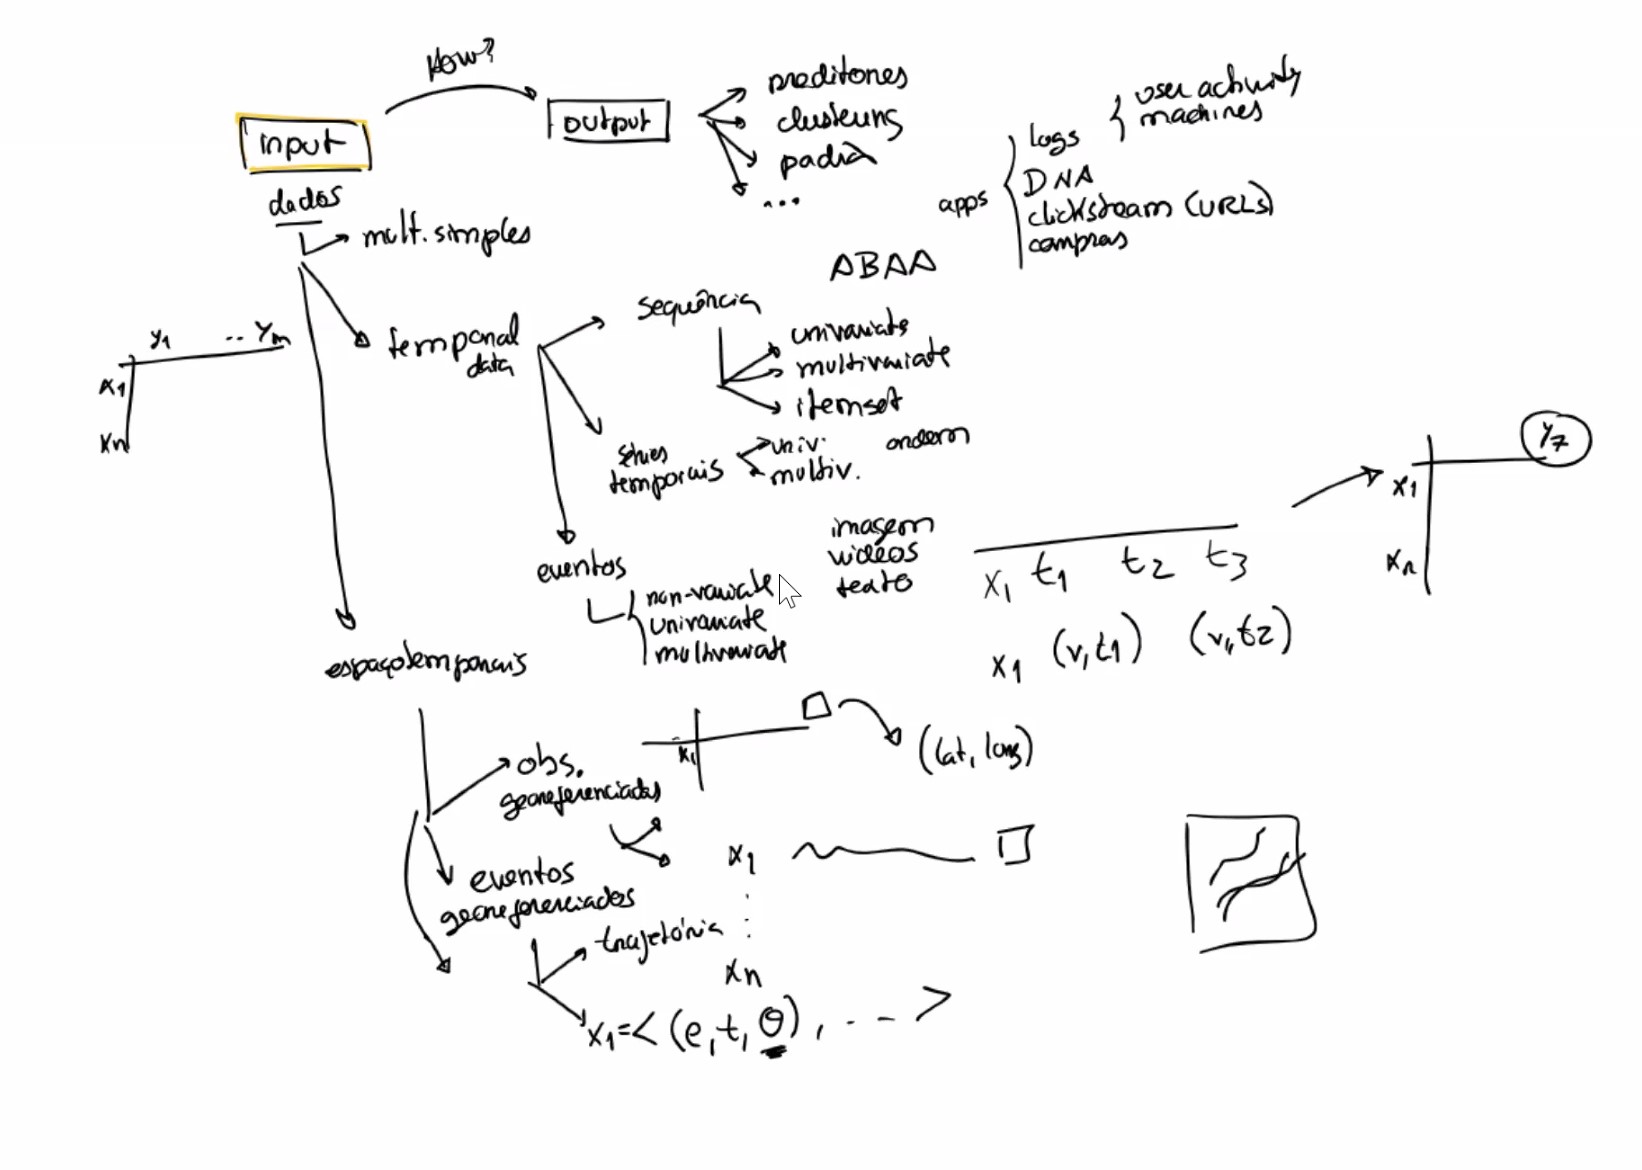 How?
input
output
preditores
clustering
padrão
...
dados
mult. simples
apps
logs
DNA
clickstream (URLs)
compras
user activity
machines
y1 .. ym
x1
xn
temporal
data
sequência
ABAA
univariate
multivariate
itemset
séries
temporais
univ.
multiv.
ordem
eventos
non-variate
univariate
multivariate
imagem
videos
texto
x1 t1 t2 t3
x1 (v,t1) (v,t2)
y7
x1
xn
espaçotemporais
obs.
georeferenciadas
x1
(lat, long)
eventos
georeferenciados
x1
xn
trajetória
x1=< (e,t,θ), ... >